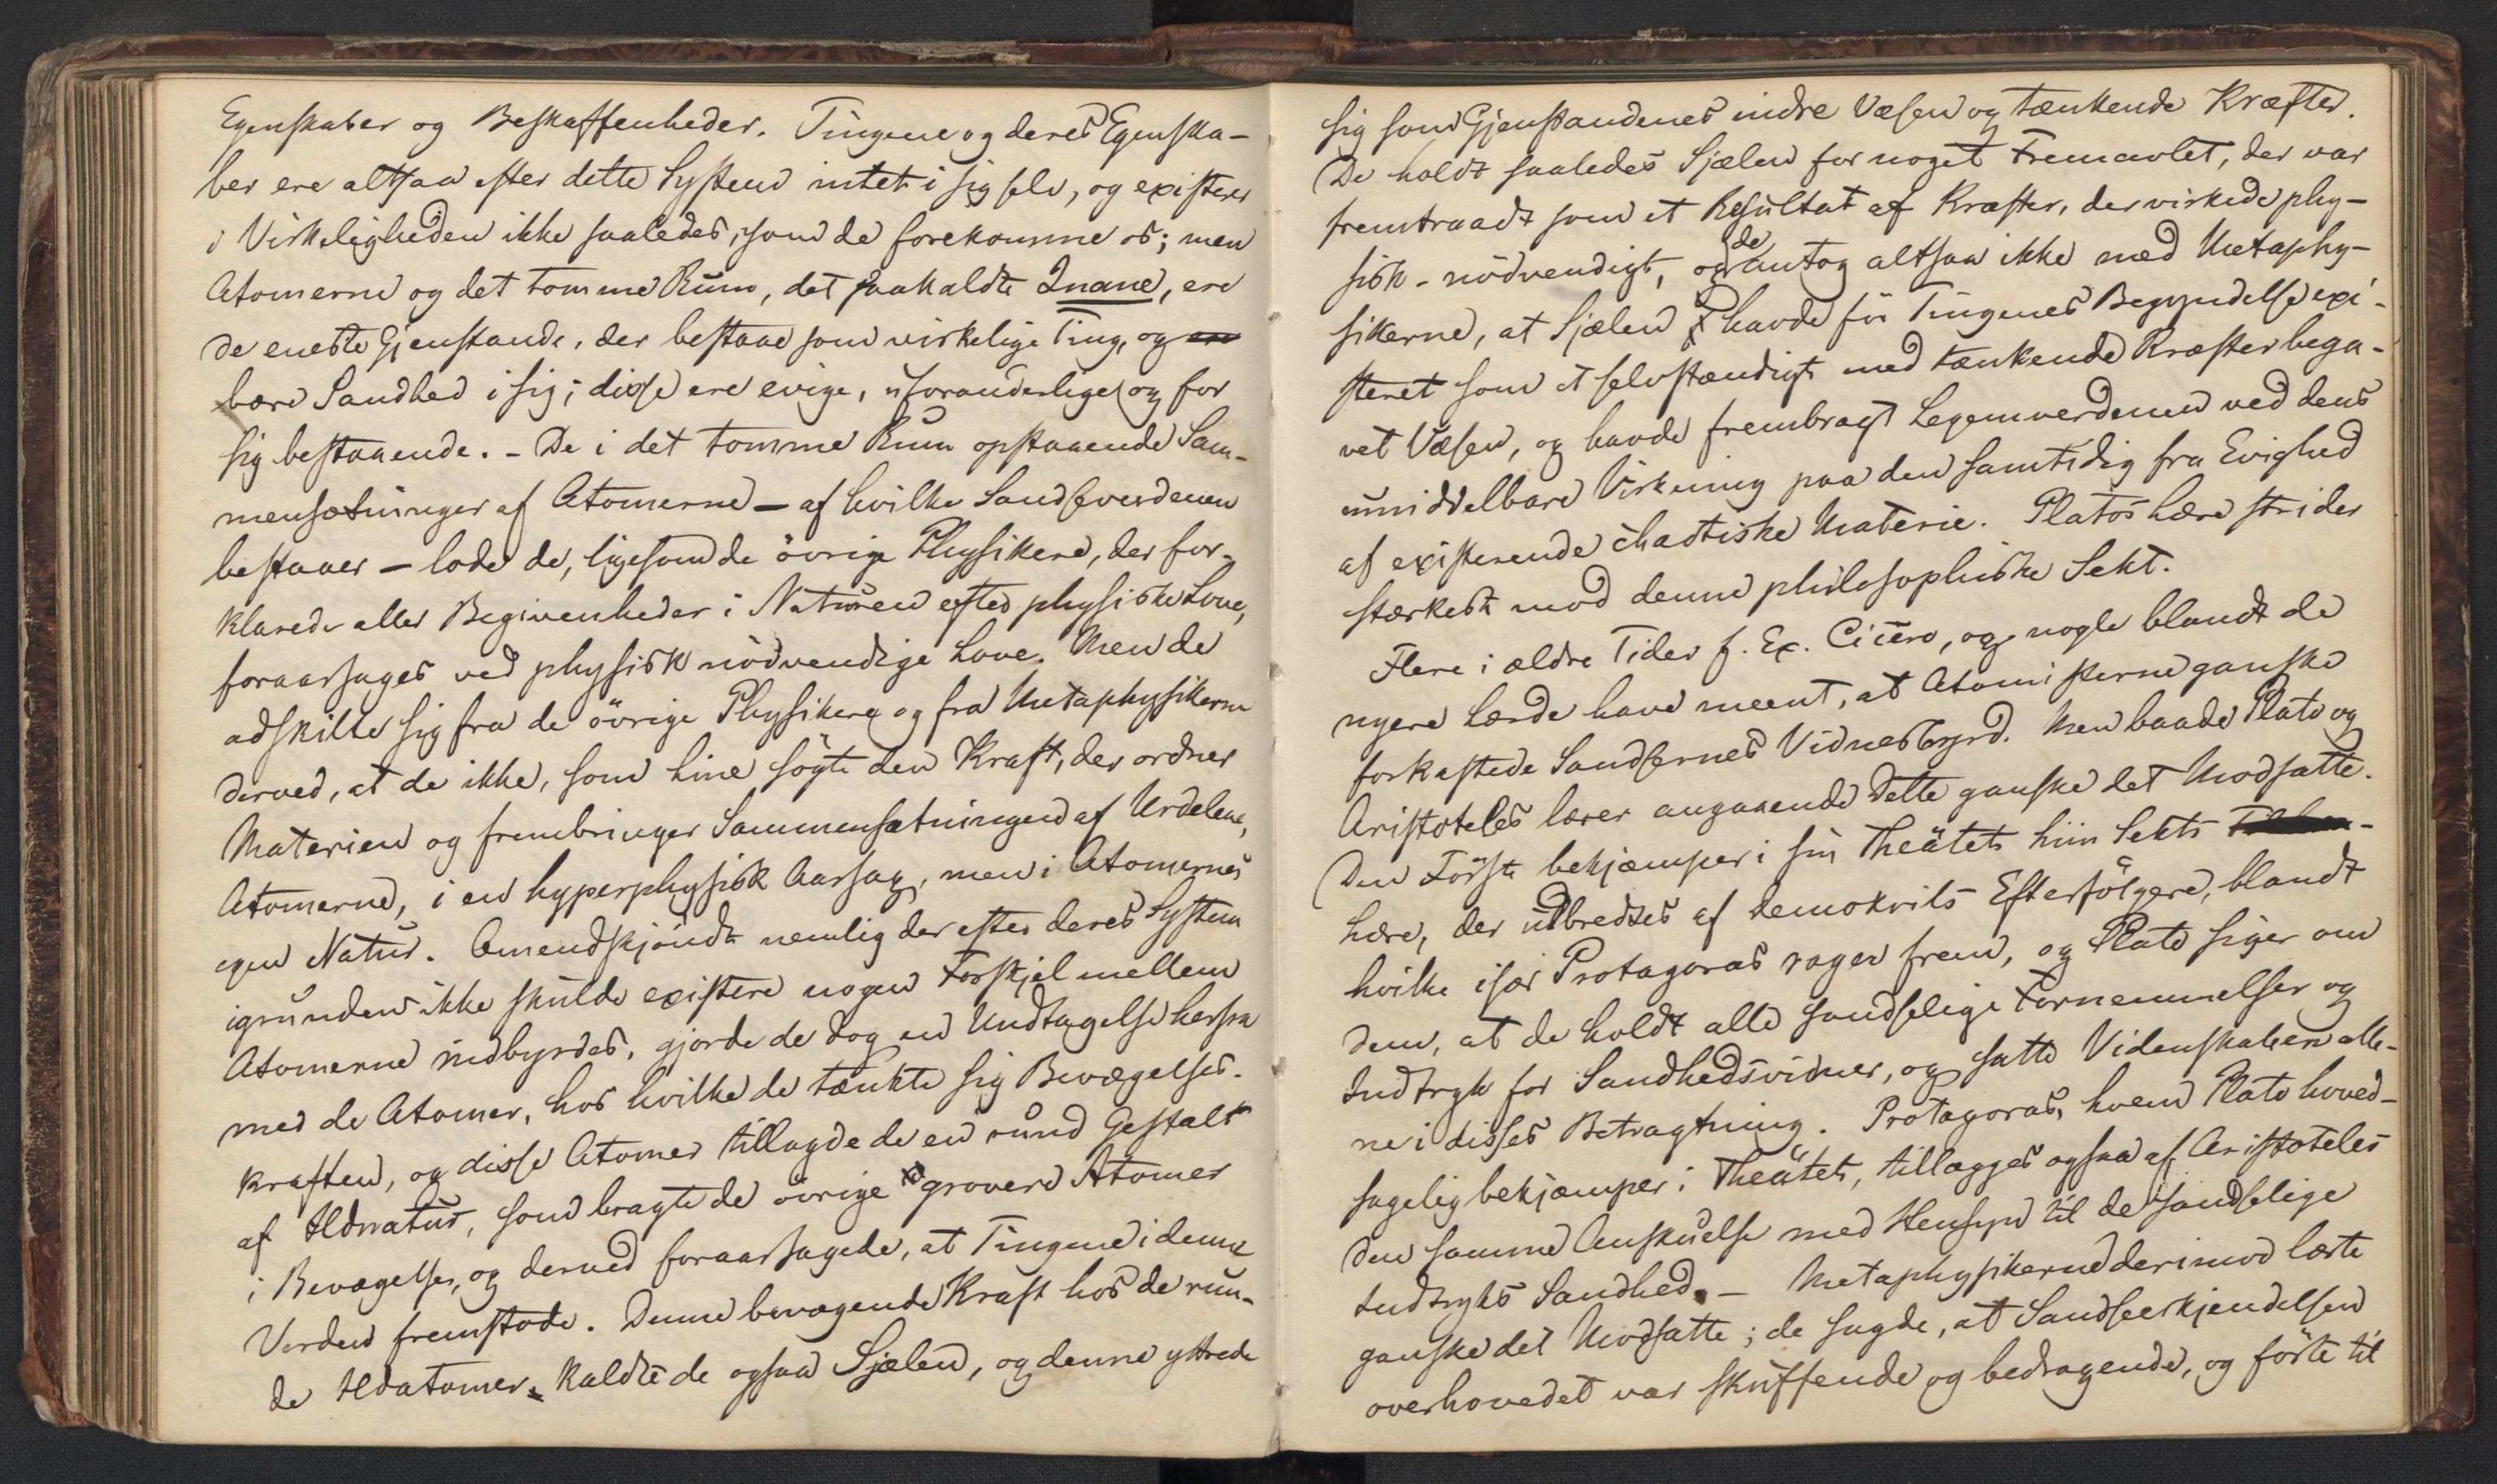 Egenskaber og Beskaffenheder. Tingene og deres Egenska-
ber ere altsaa efter dette System intet i sig selv, og existere
i Virkeligheden ikke saaledes, som de forekomme os; men
Atomerne og det tomme Rum, det saakaldte Inane, ere
de eneste Gjenstande, der bestaae som virkelige Ting, og ere
bare Sandhed i sig; disse ere evige, uforanderlige og for
sig bestaaende. - De i det tomme Rum opstaaende Sam-
mensætninger af Atomerne - af hvilke Sandseverdenen
bestaaer - lode de, ligesom de övrige Physikere, der for-
klarede alle Begivenheder i Naturen efter physiske Love,
foraarsages ved physisk nödvendige Love. Men de
adskilte sig fra de övrige Physikere og fra Metaphysikerne
derved, at de ikke, som hine sögte den Kraft, der ordner
Materien og frembringer Sammensætningen af Urdelene,
Atomerne, i en hyperphysisk Aarsag, men i Atomernes
egen Natur. Omendskjöndt nemlig der efter deres System
igrunden ikke skulde existere nogen Forskjel mellem
Atomerne indbyrdes, gjorde de dog en Undtagelse herfra
med de Atomer, hos hvilke de tænkte sig Bevægelses-
kraften, og disse Atomer tillagde de en rund Gestalt
af Ildnatur, som bragte de övrige grovere Atomer
i Bevægelse, og derved foraarsagede, at Tingene i denne
Verden fremstode. Denne bevægende Kraft hos de run-
de Ildatomer kaldte de ogsaa Sjælen, og denne yttrede
sig som Gjenstandenes indre Væsen og tænkende Kræfter.
De holdt saaledes Sjælen for noget Fremavlet, der var
fremtraadt som et Resultat af Kræfter, der virkede phy-
sisk-nödvendigt, og de antog altsaa ikke med Metaphy-
sikerne, at Sjælen havde för Tingenes Begyndelse exi-
steret som et selvstændigt med tænkende Kræfter bega-
vet Væsen, og havde frembragt Legemverdenen ved dens
umiddelbare Virkning paa den samtidig fra Evighed
af existerende chaotiske Materie. Platos Lære strider
stærkest mod denne philosophiske Sekt.
Flere i ældre Tider f. Ex. Cicero, og nogle blandt de
nyere Lærde have meent, at Atomisterne ganske
forkastede Sandsernes Vidnesbyrd. Men baade Plato og
Aristoteles lærer angaaende dette ganske det Modsatte.
Den Förste bekjæmper i sin Theätet hiin Sekts
Lære, der udbredtes af Demokrits Efterfölgere, blandt
hvilke især Protagoras rager frem, og Plato siger om
dem, at de holdt alle sandselige Fornemmelser og
Indtryk for Sandhedsvidner, og satte Videnskaben alle-
ne i disses Betragtning. Protagoras, hvem Plato hoved-
sagelig bekjæmper i Theätet, tillægges ogsaa af Aristoteles
den samme Anskuelse med Hensyn til de sandselige
Indtryks Sandhed. - Metaphysikerne derimod lærte
ganske det Modsatte; de sagde, at Sandseerkjendelsen
overhovedet var skuffende og bedragende, og förte til